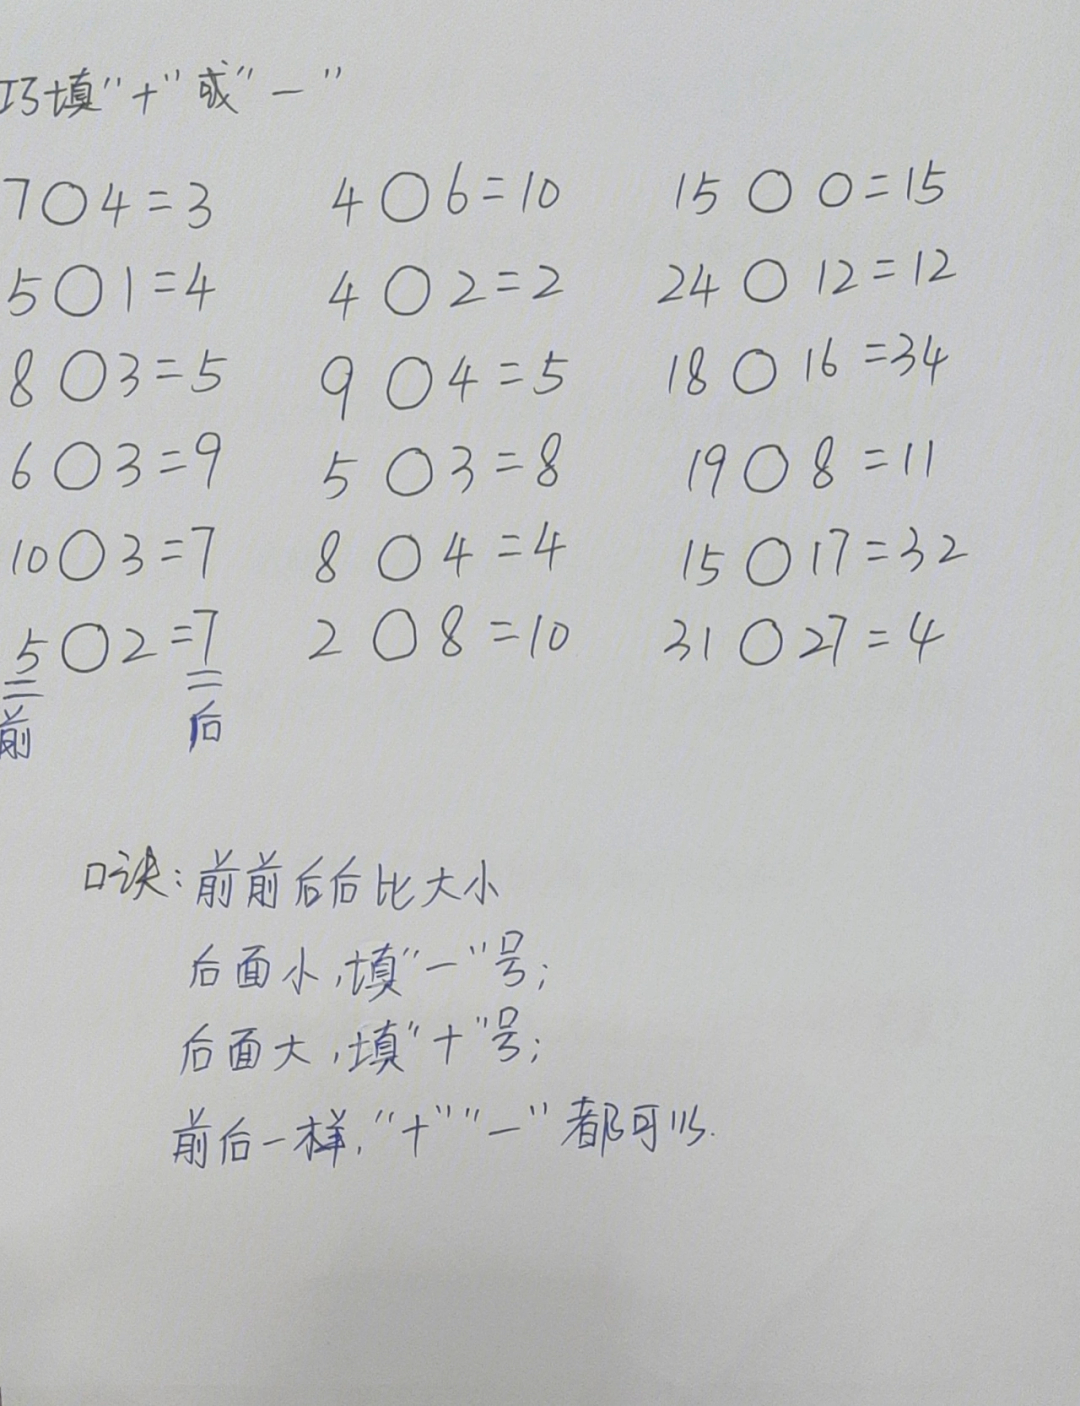 巧填“+”或“-”
7○4=3 4○6=10 15○0=15
5○1=4 4○2=2 24○12=12
8○3=5 9○4=5 18○16=34
6○3=9 5○3=8 19○8=11
10○3=7 8○4=4 15○17=32
5○2=7 2○8=10 31○27=4
前 后
口诀:前前后后比大小
后面小,填“-”号;
后面大,填“+”号;
前后一样,“+”“-”都可以.